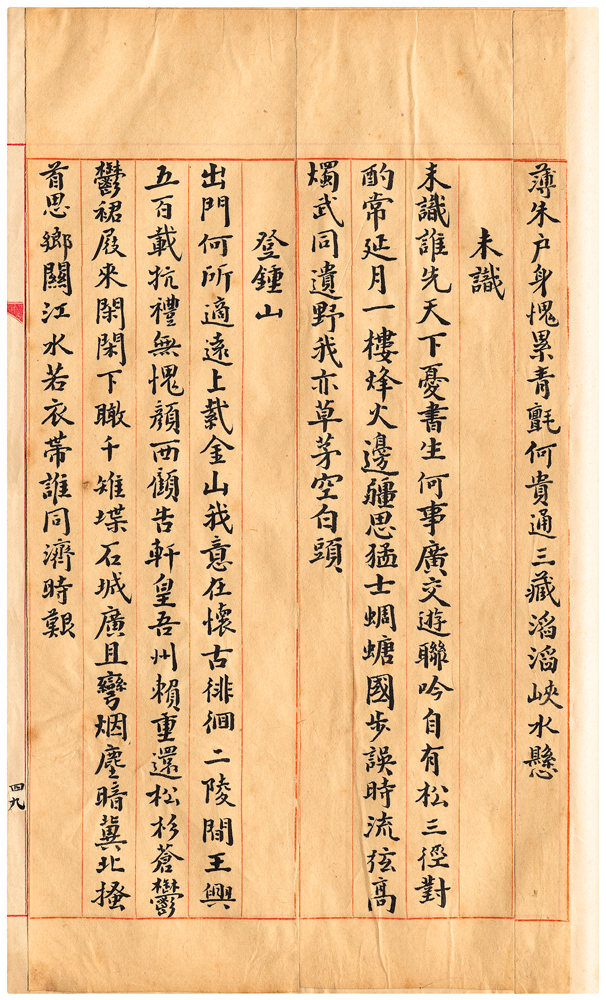 薄朱户身愧累青氈何貴通三藏滔滔峽水懸
未識
未識誰先天下憂書生何事廣交遊聯吟自有松三徑對
酌常延月一樓烽火邊疆思猛士蜩螗國步誤時流弦高
燭武同遺野我亦草茅空白頭
登鍾山
出門何所適遠上紫金山我意在懷古徘徊二陵間王興
五百載抗禮無愧顏西顧告軒皇吾州賴重還松杉蒼鬱
鬱裙屐來閑閑下瞰千雉堞石城廣且彎烟塵暗冀北搔
首思鄉關江水若衣帶誰同濟時艱
四九